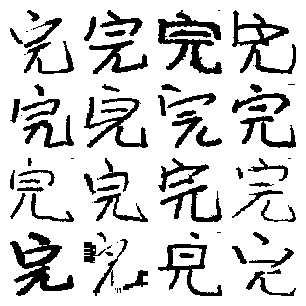 完完完完
完完完完
完完完完
完完完完